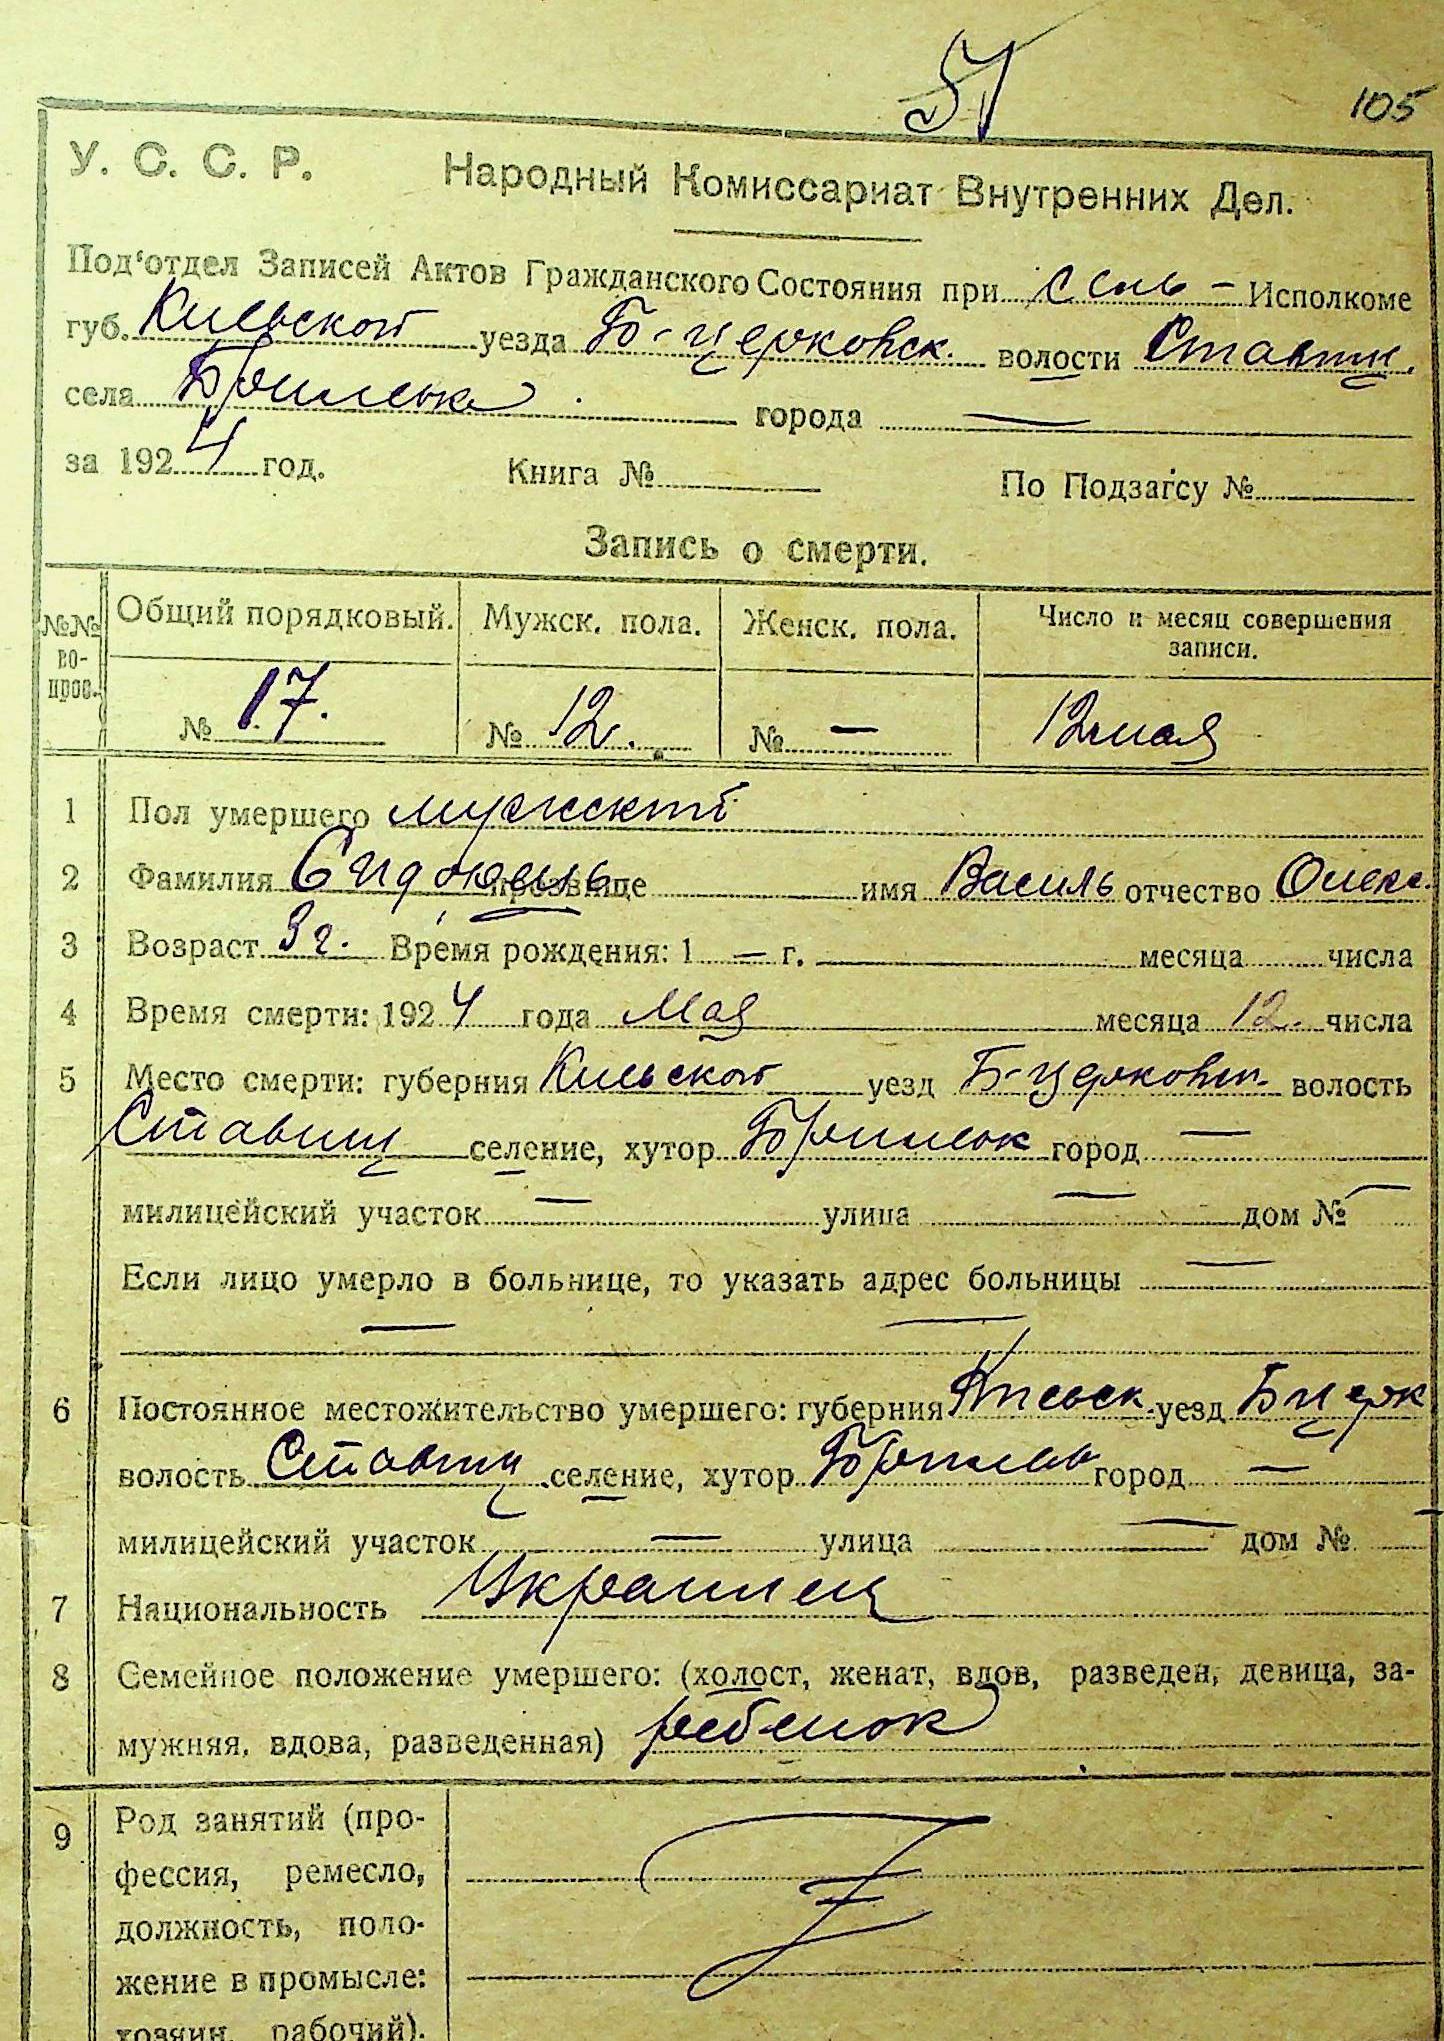 51
105
У. С. С. Р. Народный Комиссариат Внутренних Дел.
Под'отдел Записей Актов Гражданского Состояния при Исполкоме
губ. Киевской уезда Б-Церковск. волости Ставищ.
села города —
за 1924 год. Книга № По Подзагсу №
Запись о смерти.
№№ во- прос. Общий порядковый. Мужск. пола. Женск. пола. Число и месяц совершения записи.
№ 17. № 12. № — 12 мая
1 Пол умершего мужской
2 Фамилия прозвище имя Василь отчество Олекс.
3 Возраст 3 г. Время рождения: 1 — г. месяца числа
4 Время смерти: 1924 года Мая месяца 12. числа
5 Место смерти: губерния Киевской уезд Б-Церковск. волость
Ставищ селение, хутор город —
милицейский участок — улица — дом № —
Если лицо умерло в больнице, то указать адрес больницы —
— —
6 Постоянное местожительство умершего: губерния Киевск. уезд Б Церк
волость Ставищ селение, хутор город —
милицейский участок — улица — дом № —
7 Национальность Украинец
8 Семейное положение умершего: (холост, женат, вдов, разведен, девица, за-
мужняя, вдова, разведенная) ребенок
9 Род занятий (про-
фессия, ремесло,
должность, поло-
жение в промысле:
хозяин, рабочий).